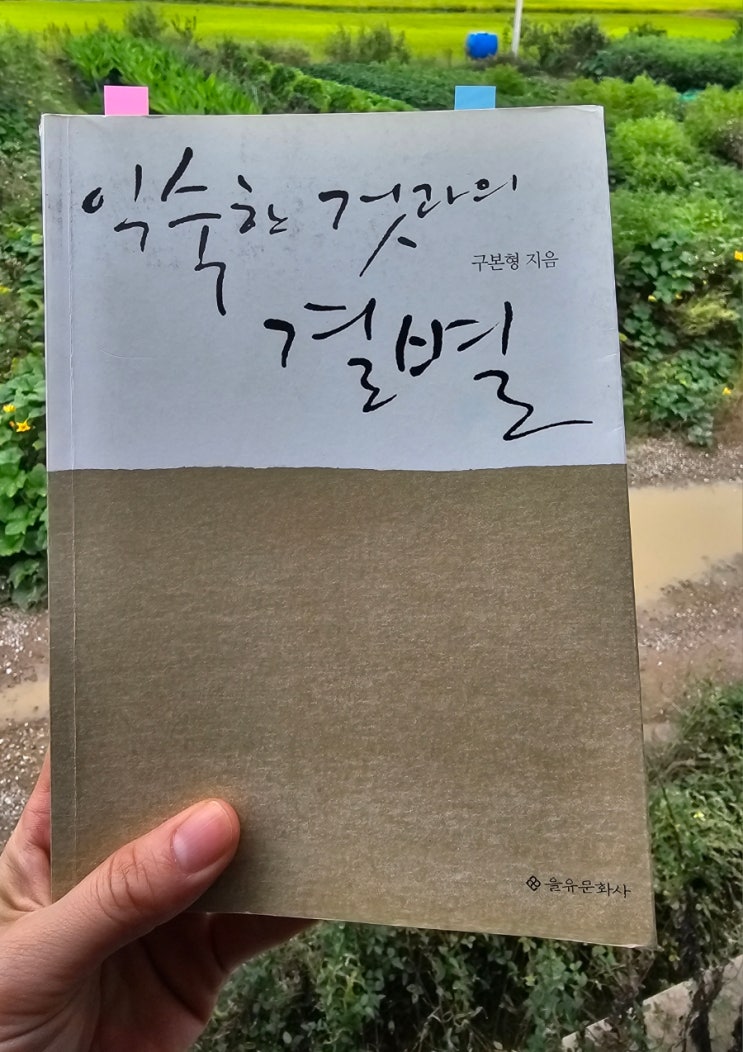 익숙한 것과의
구본형 지음
결별
을유문화사